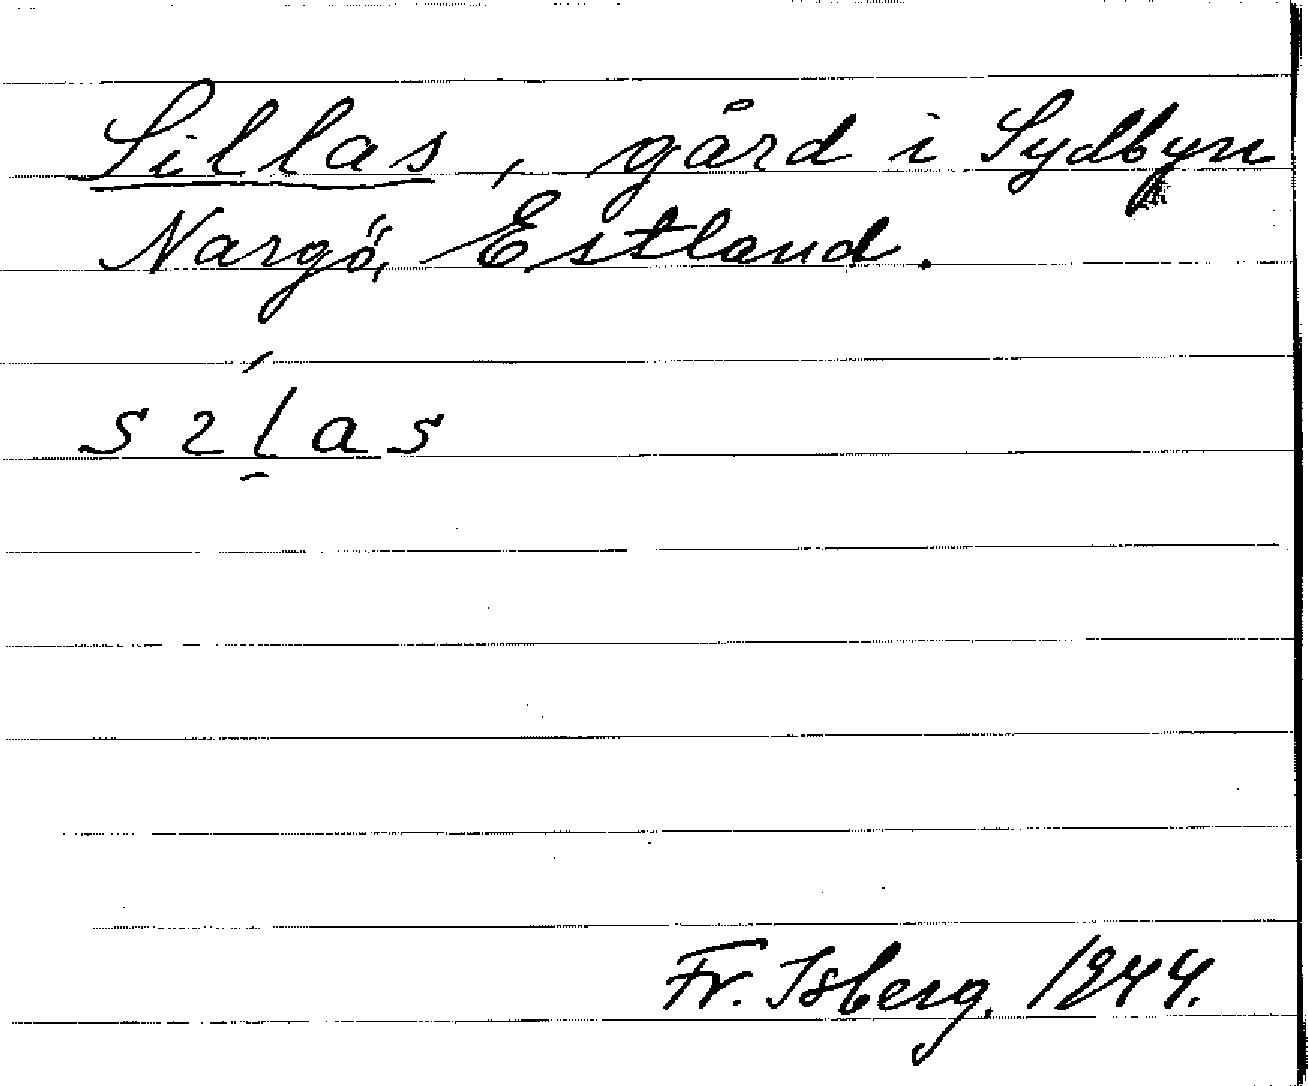 Sillas, gård i Sydbyn
Nargö, Estland.
sılas
Fr. Isberg. 1944.